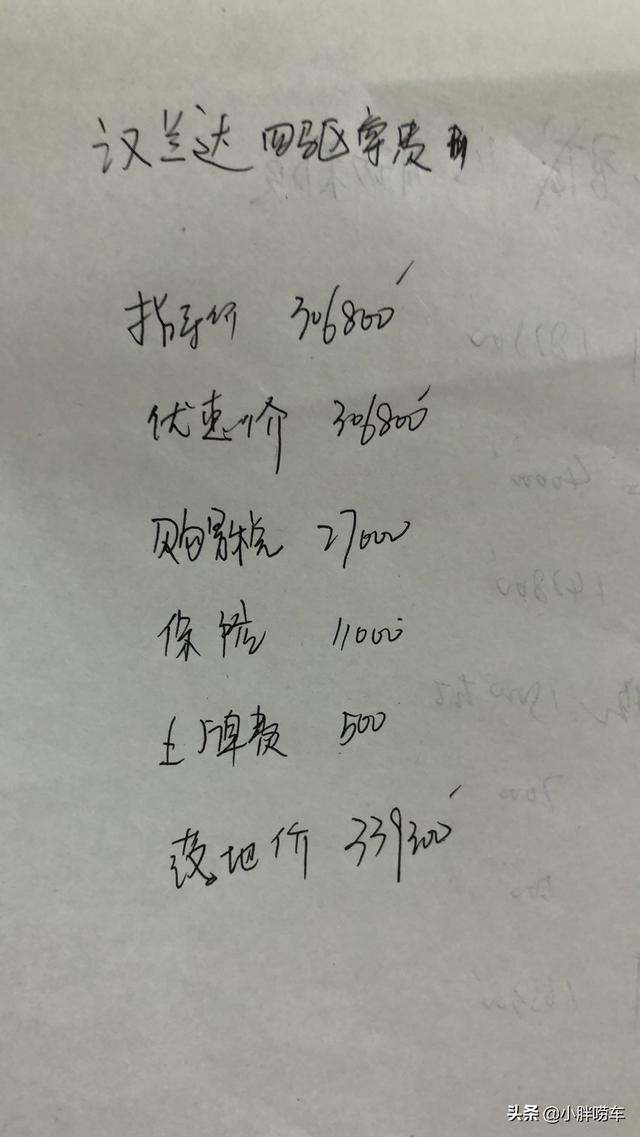 汉兰达 四驱尊贵版
指导价 306800
优惠价 306800
购置税 27000
保险 11000
上牌费 500
落地价 339300
头条 @小胖唠车